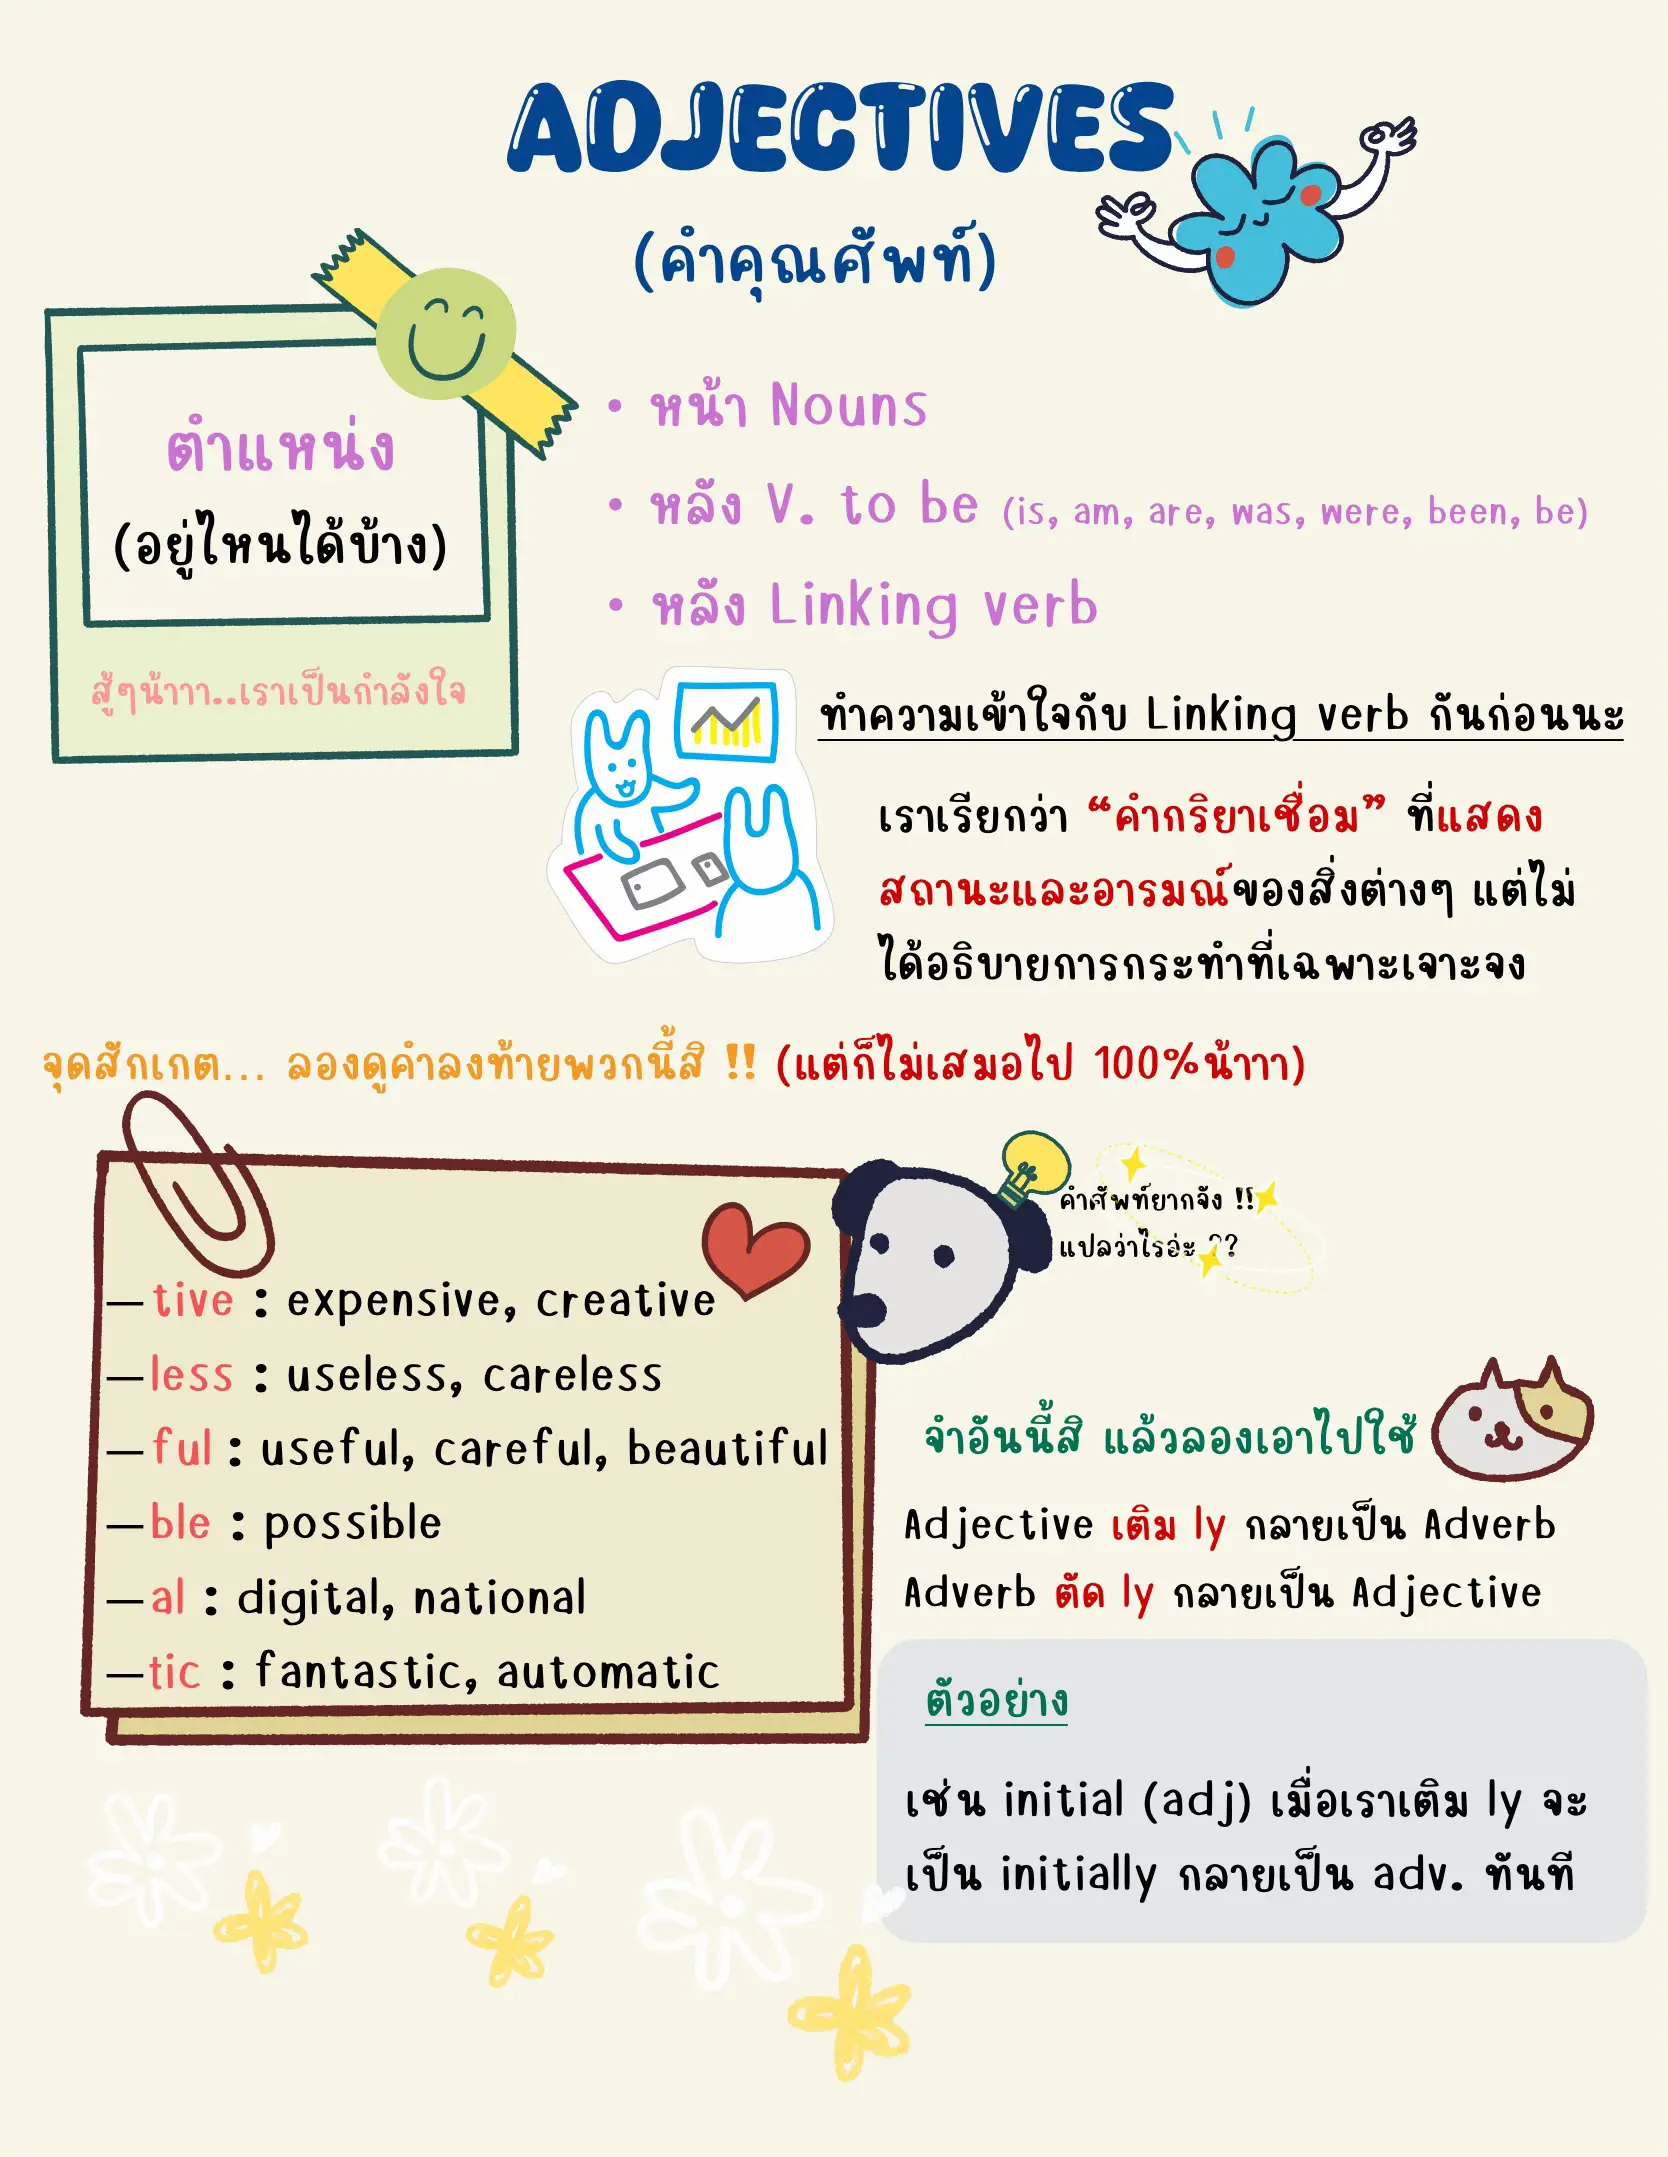 ADJECTIVES
(คำคุณศัพท์)
ตำแหน่ง
(อยู่ไหนได้บ้าง)
สู้ๆน้าาา..เราเป็นกำลังใจ
• หน้า Nouns
• หลัง V. to be (is, am, are, was, were, been, be)
• หลัง Linking verb
ทำความเข้าใจกับ Linking verb กันก่อนนะ
เราเรียกว่า “คำกริยาเชื่อม” ที่แสดง
สถานะและอารมณ์ของสิ่งต่างๆ แต่ไม่
ได้อธิบายการกระทำที่เฉพาะเจาะจง
จุดสังเกต... ลองดูคำลงท้ายพวกนี้สิ !! (แต่ก็ไม่เสมอไป 100%น้าาา)
คำศัพท์ยากจัง !!
แปลว่าไรอ่ะ ??
—tive : expensive, creative
—less : useless, careless
—ful : useful, careful, beautiful
—ble : possible
—al : digital, national
—tic : fantastic, automatic
จำอันนี้สิ แล้วลองเอาไปใช้
Adjective เติม ly กลายเป็น Adverb
Adverb ตัด ly กลายเป็น Adjective
ตัวอย่าง
เช่น initial (adj) เมื่อเราเติม ly จะ
เป็น initially กลายเป็น adv. ทันที